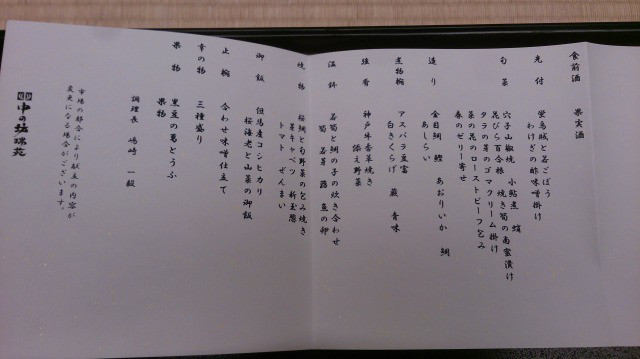 食前酒　果実酒
先付　蛍烏賊と若ごぼう
わけぎの酢味噌掛け
旬菜　穴子山椒焼　小鮎煮　蛸
花びら百合根　焼き筍の南蛮漬け
タラの芽のゴマクリーム掛け
菜の花のローストビーフ包み
春のゼリー寄せ
造り　金目鯛　鰹　あおりいか　鯛
あしらい
煮物椀　アスパラ豆腐
白きくらげ　蕨　青味
強肴　神戸牛香草焼き
添え野菜
温鉢　若筍と鯛の子の炊き合わせ
筍　若芽　蕗　魚の卵
焼物　桜鯛と旬野菜の包み焼き
芽キャベツ　新玉葱
トマト　ぜんまい
御飯　但馬産コシヒカリ
桜海老と山菜の御飯
止椀　合わせ味噌仕立て
香の物　三種盛り
果物　黒豆の葛とうふ
果物
調理長　嶋崎　一毅
市場の都合により献立の内容が
変更になる場合がございます。
中の坊瑞苑